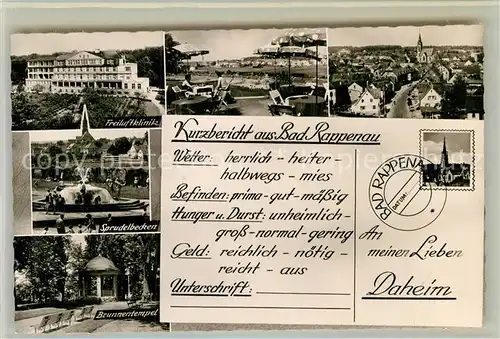 Freiluftklinik
Sprudelbecken
Brunnentempel
Kurzbericht aus Bad Rappenau
Wetter: herrlich - heiter -
halbwegs - mies
Befinden: prima - gut - mäßig
Hunger u. Durst: unheimlich -
groß - normal - gering
Geld: reichlich - nötig -
reicht - aus
Unterschrift:
BAD RAPPENAU
DATUM
An
meinen Lieben
Daheim